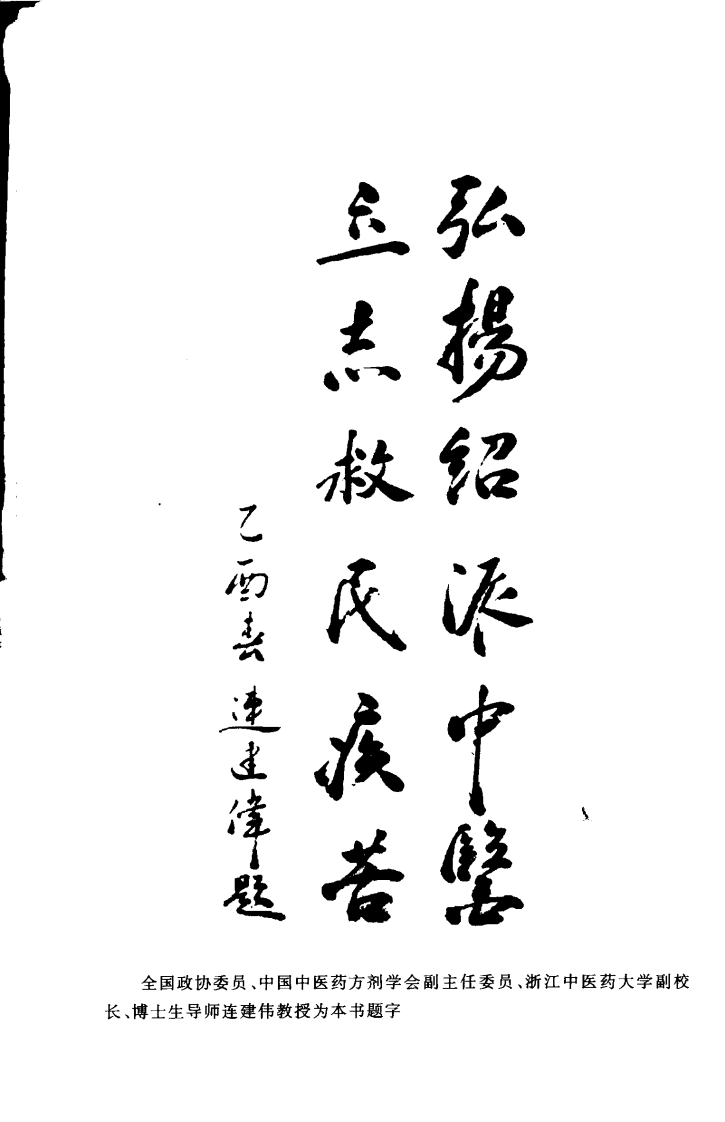 弘揚紹派中醫
立志救民疾苦
乙酉春 連建偉題
全国政协委员、中国中医药方剂学会副主任委员、浙江中医药大学副校
长、博士生导师连建伟教授为本书题字